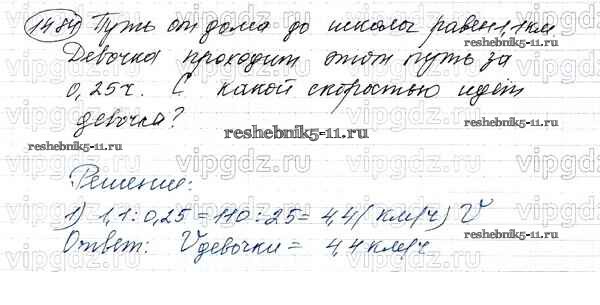 1484) Путь от дома до школы равен 1,1 км.
reshebnik5-11.ru
Девочка проходит этот путь за
0,25 ч. С какой скоростью идёт
девочка?
reshebnik5-11.ru
reshebnik5-11.ru
vipgdz.ru vipgdz.ru vipgdz.ru
Решение:
1) 1,1 : 0,25 = 110 : 25 = 4,4 (км/ч) V
reshebnik5-11.ru
Ответ: Vдевочки = 4,4 км/ч
vipgdz.ru vipgdz.ru vipgdz.ru